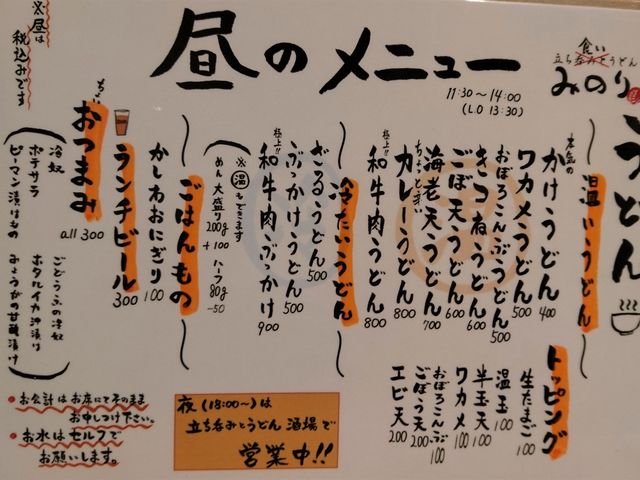 昼のメニュー
11:30〜14:00
(L.O 13:30)
食い
立ち呑みとうどん
みのり
うどん
※昼は
税込みです
温いうどん
本気の
かけうどん 400
ワカメうどん 500
おぼろこんぶうどん 500
きつねうどん 600
ごぼ天うどん 600
海老天うどん 700
ちょっと辛い
カレーうどん 800
極上!!
和牛肉うどん 800
冷たいうどん
ざるうどん 500
ぶっかけうどん 500
極上!!
和牛肉ぶっかけ 900
(※温もできます)
めん大盛り200g +100 ハーフ80g -50
ごはんもの
かしわおにぎり 100
ランチビール 300
ちょい
おつまみ
all 300
冷奴
ポテサラ
ピーマン漬けもの
ごどうふの冷奴
ホタルイカ沖漬け
みょうがの甘酢漬け
トッピング
生たまご 100
温玉 100
半玉天 100
ワカメ 100
おぼろこんぶ 100
ごぼう天 200
エビ天 200
・お会計はお席にてそのまま
お申しつけ下さい。
・お水はセルフで
お願いします。
夜(18:00〜)は
立ち呑みとうどん酒場で
営業中!!